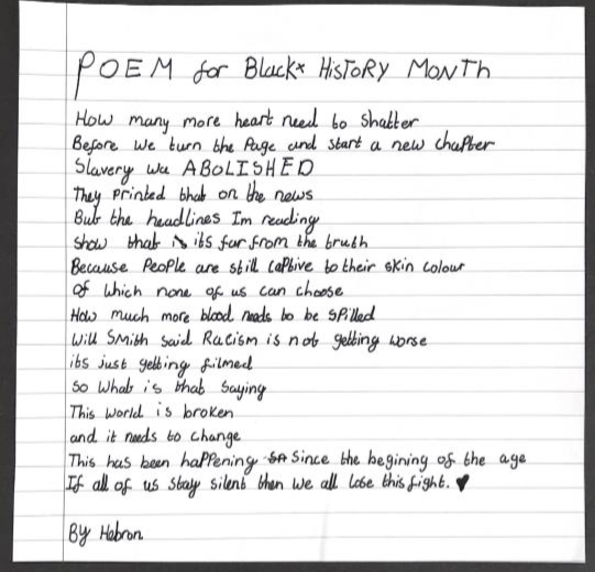 POEM for Black HISTORY MONTH
How many more heart need to shatter
Before we turn the Page and start a new chapter
Slavery wa ABOLISHED
They printed that on the news
But the headlines Im reading
Show that its far from the truth
Because People are still captive to their skin colour
of which none of us can choose
How much more blood needs to be spilled
Will Smith said Racism is not getting worse
its just getting filmed
So What is that saying
This world is broken
and it needs to change
This has been haPPening since the begining of the age
If all of us stay silent then we all lose this fight. ♥
By Hebron